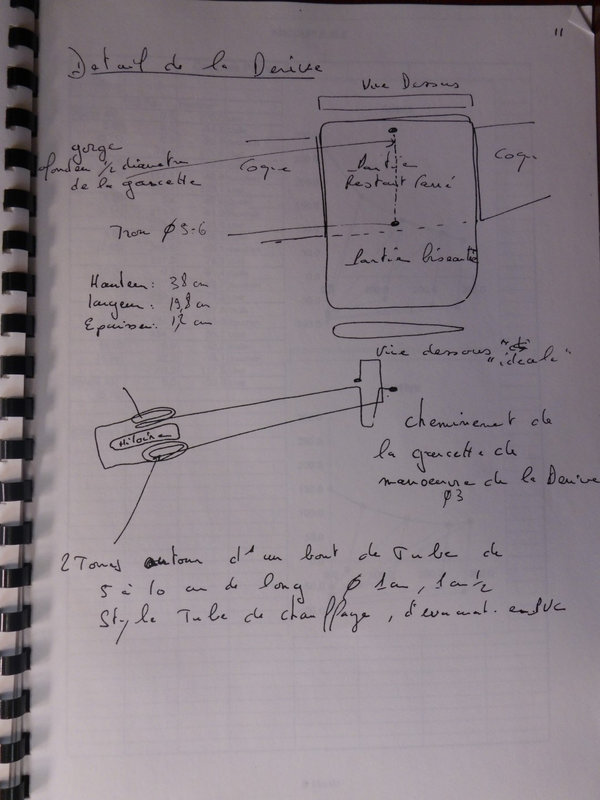 11
Detail de la Derive
Vue Dessus
gorge
1/2 diametre
de la garcette
Coque
Partie
Restant Carré
Coqu
Trou Ø 5-6
Partie biseautée
Hauteur: 38 cm
largeur: 19,8 cm
Epaisseur: 1,2 cm
Vue dessous
"ideale"
Hiloire
cheminement de
la garcette de
manoeuvre de la Derive
Ø3
2 Tours autour d'un bout de Tube de
5 à 10 cm de long Ø 1cm, 1cm 1/2
Style Tube de chauffage, d'evacuat. en PVC